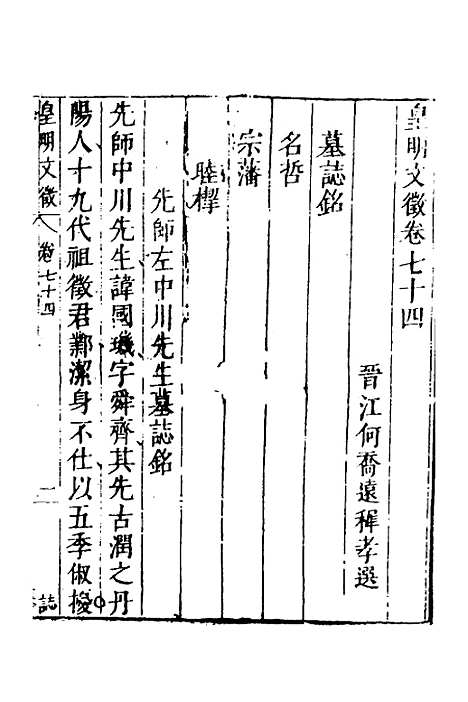 皇明文徵卷七十四
晉江何喬遠穉孝選
墓誌銘
名哲
宗藩
睦㮮
先師左中川先生墓誌銘
先師中川先生諱國璣字舜齊其先古潤之丹
陽人十九代祖徵君鄴潔身不仕以五季俶擾
皇明文徵 卷七十四 一 誌